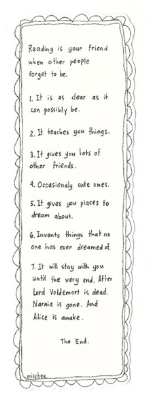 Reading is your friend
when other people
forget to be.
1. It is as clear as it
can possibly be.
2. It teaches you things.
3. It gives you lots of
other friends.
4. Occasionaly cute ones.
5. It gives you places to
dream about.
6. Invents things that no
one has ever dreamed of.
7. It will stay with you
until the very end. After
Lord Voldemort is dead.
Narnia is gone. And
Alice is awake.
The End.